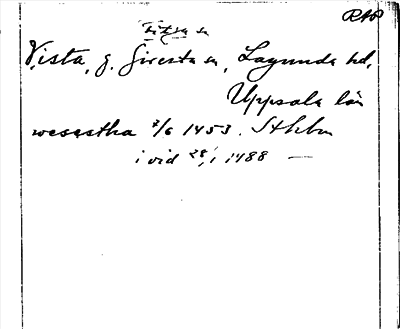 RAP
Vista, g. Giresta sn, Lagunda hd,
Uppsala län
wesastha 7/6 1453. Sthlm
i vid 28/1 1488 —